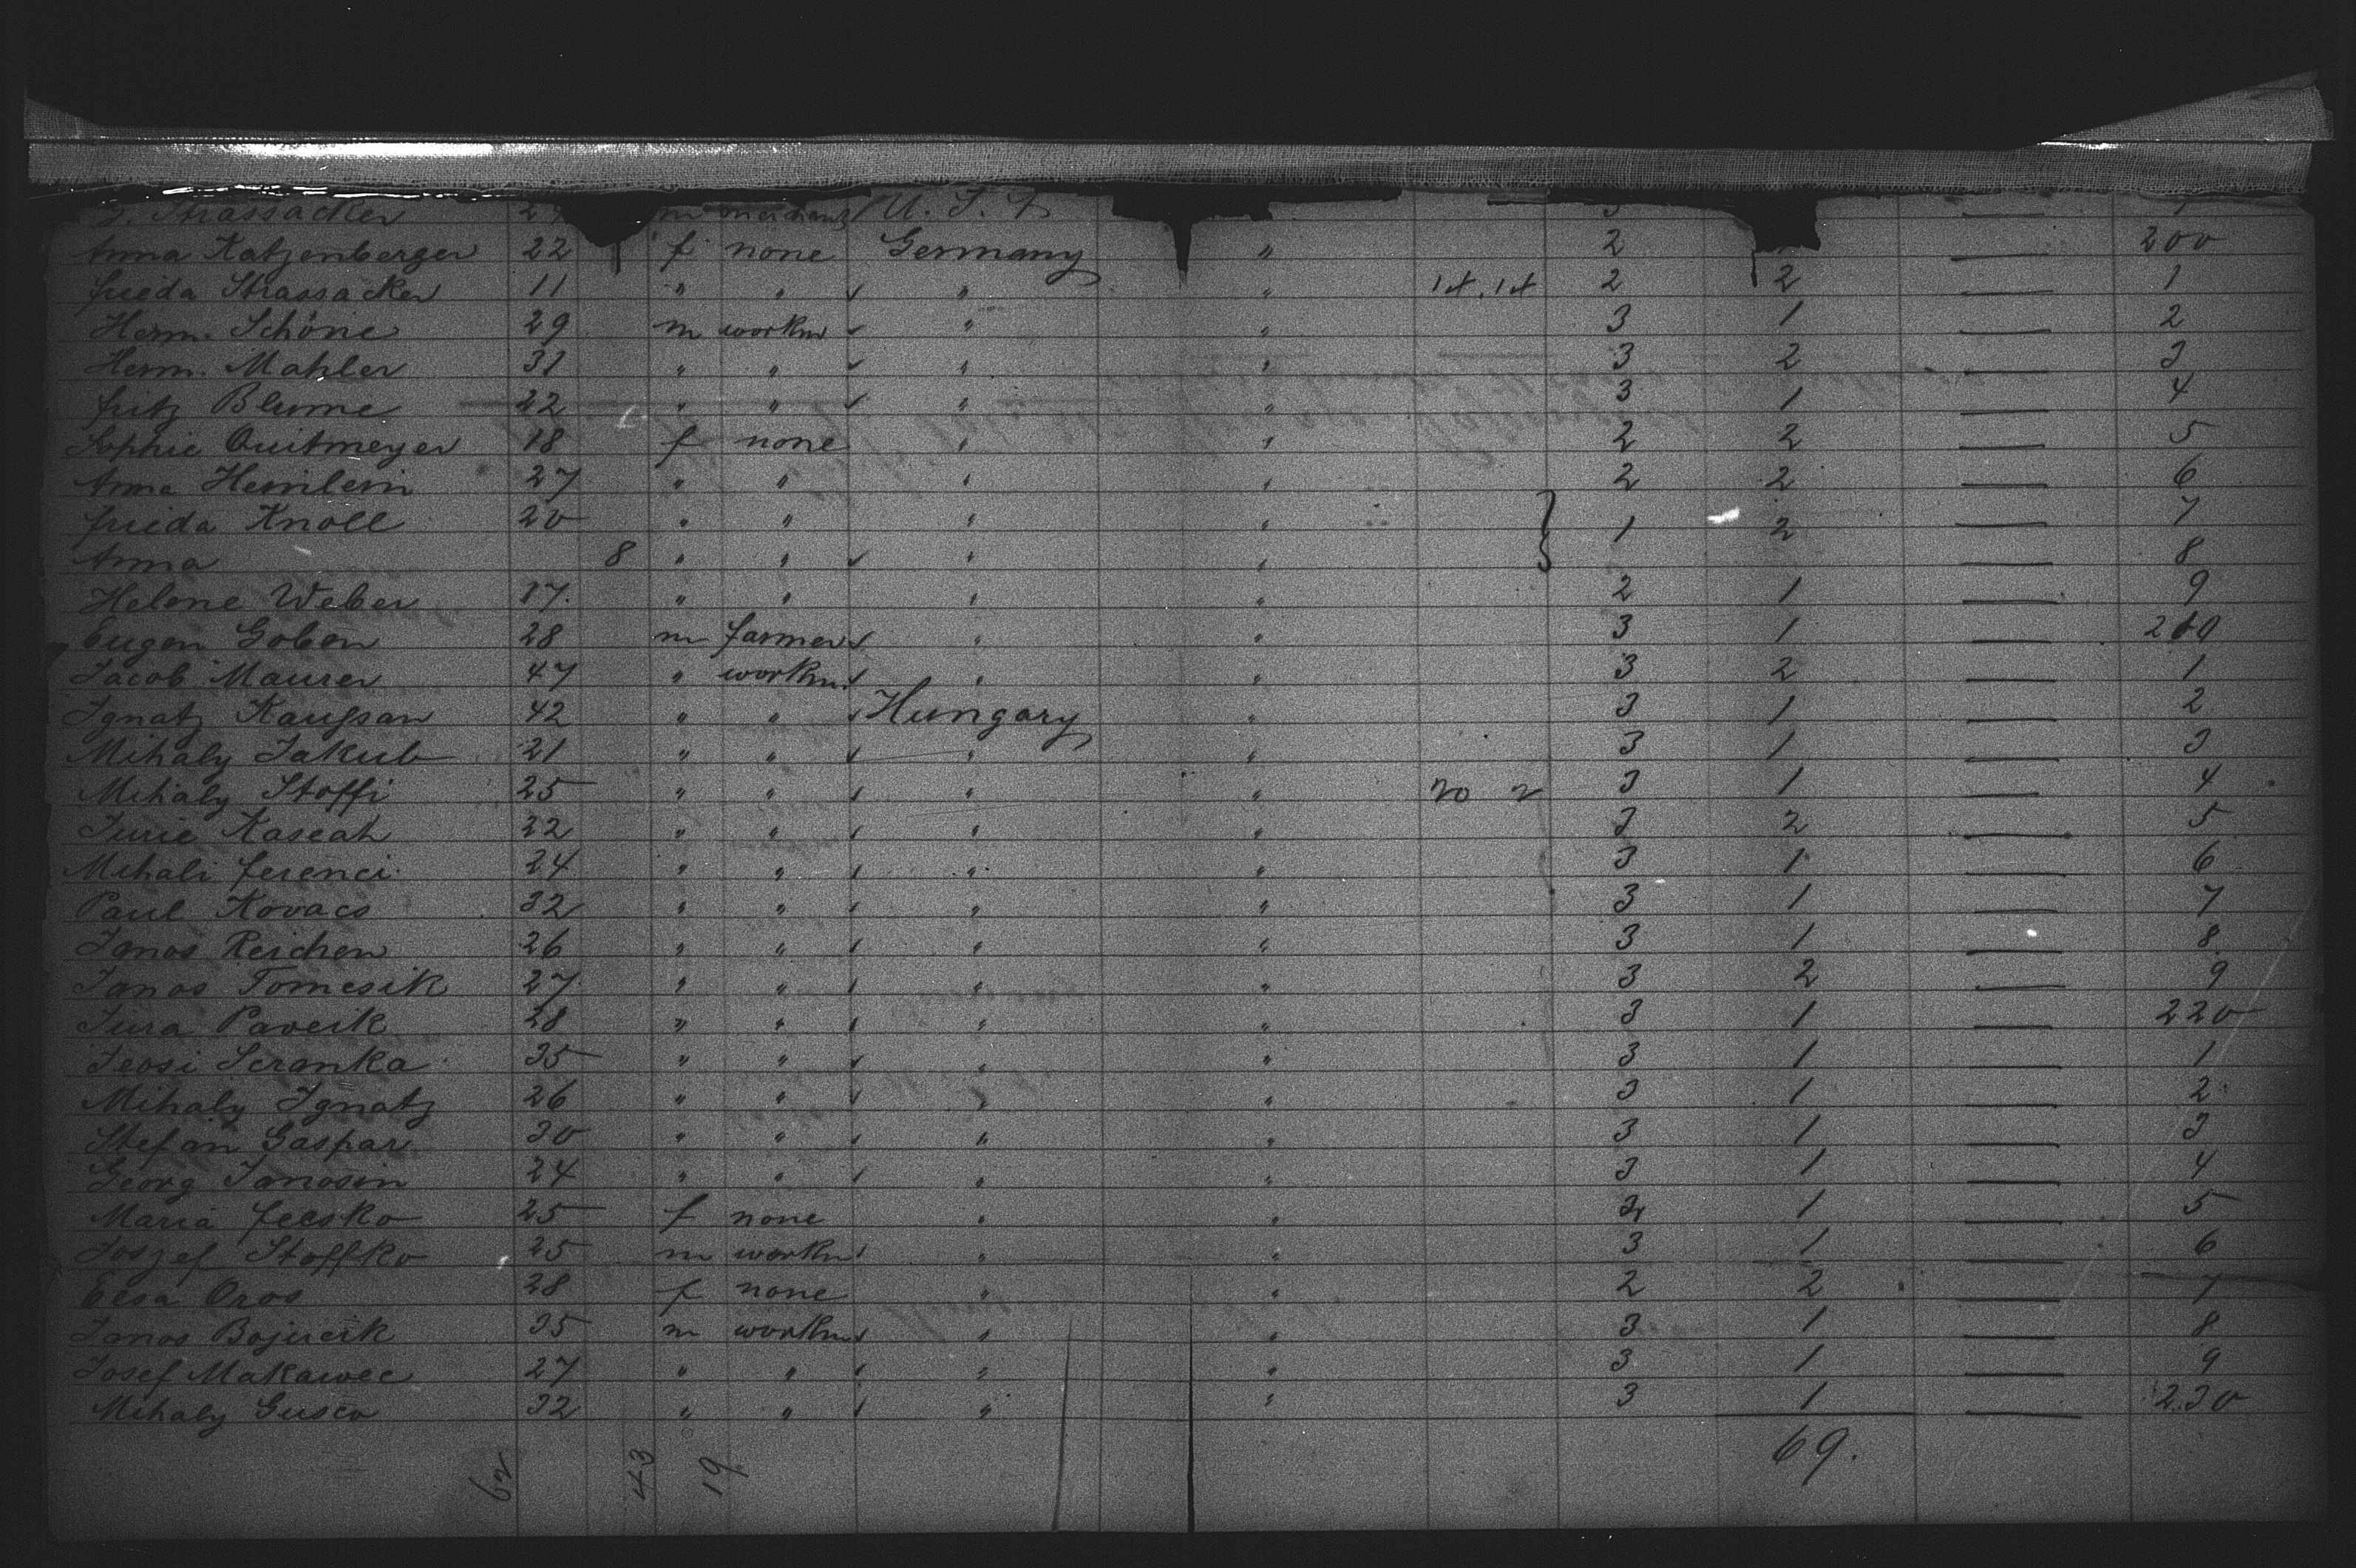 Strassacker m merchant U. S. A
Anna Katzenberger 22 f none Germany " 2 — 200
Frieda Strassacker 11 " " ✓ " " 2 2 — 1
Herm. Schöne 29 m workm ✓ " " 3 1 — 2
Herm. Mahler 31 " " ✓ " " 3 2 — 3
Fritz Blume 22 " " ✓ " " 3 1 — 4
Sophie Quitmeyer 18 f none " " 2 2 — 5
Anna Hemlein 27 " " " " 2 2 — 6
Frieda Knoll 20 " " " " } 1 2 — 7
Anna 8 " " ✓ " " — 8
Helene Weber 17. " " " " 2 1 — 9
Eugen Goben 28 m farmer ✓ " " 3 1 — 210
Jacob Maurer 47 " workm. ✓ " " 3 2 — 1
Ignatz 42 " " ✓ Hungary " 3 1 — 2
Mihaly Jakub 21 " " ✓ " " 3 1 — 3
Mihaly Stoffi 25 " " ✓ " " 3 1 — 4
Jurie Kaseah 22 " " ✓ " " 3 2 — 5
Mihali Ferenci 24 " " ✓ " " 3 1 — 6
Paul Kovacs 32 " " ✓ " " 3 1 — 7
Janos Reichen 26 " " ✓ " " 3 1 — 8
Janos Tomcsik 27. " " ✓ " " 3 2 — 9
Jura Pavcik 28 " " ✓ " " 3 1 — 220
Scranka 35 " " ✓ " " 3 1 — 1
Mihaly Ignatz 26 " " ✓ " " 3 1 — 2
Stefan Gaspar 30 " " ✓ " " 3 1 — 3
Georg Janosin 24 " " ✓ " " 3 1 — 4
Maria Fecsko 25 f none " " 1 — 5
Joszef Stoffko 25 m workm ✓ " " 3 1 — 6
Oros 28 f none " " 2 2 — 7
Janos Bojucik 35 m workm ✓ " " 3 1 — 8
Josef Makawec 27 " " ✓ " " 3 1 — 9
Mihaly Gusco 32 " " ✓ " " 3 1 — 230
69.
62 43 19